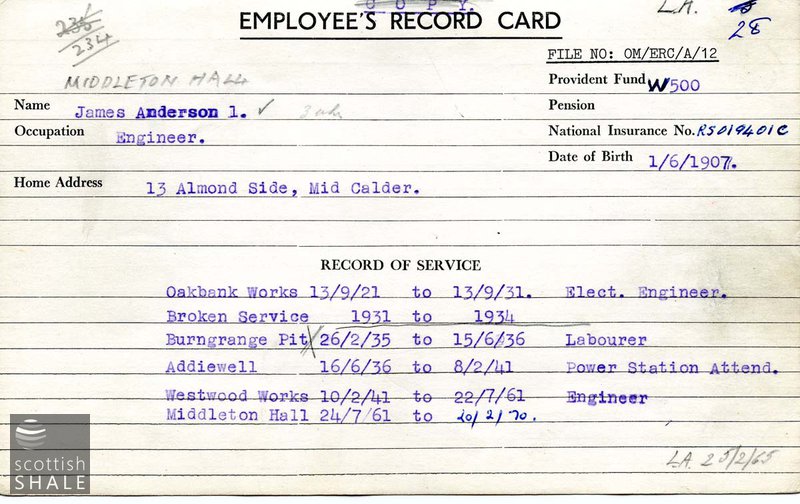 COPY.
L.A.
28
236
234
EMPLOYEE'S RECORD CARD
FILE NO: OM/ERC/A/12
MIDDLETON HALL
Provident Fund W500
Name James Anderson 1. ✓
Pension
Occupation Engineer.
National Insurance No. RS019401C
Date of Birth 1/6/1907.
Home Address 13 Almond Side, Mid Calder.
RECORD OF SERVICE
Oakbank Works 13/9/21 to 13/9/31. Elect. Engineer.
Broken Service 1931 to 1934
Burngrange Pit 26/2/35 to 15/6/36 Labourer
Addiewell 16/6/36 to 8/2/41 Power Station Attend.
Westwood Works 10/2/41 to 22/7/61 Engineer
Middleton Hall 24/7/61 to 20/2/70.
L.A. 25/2/65
scottish
SHALE